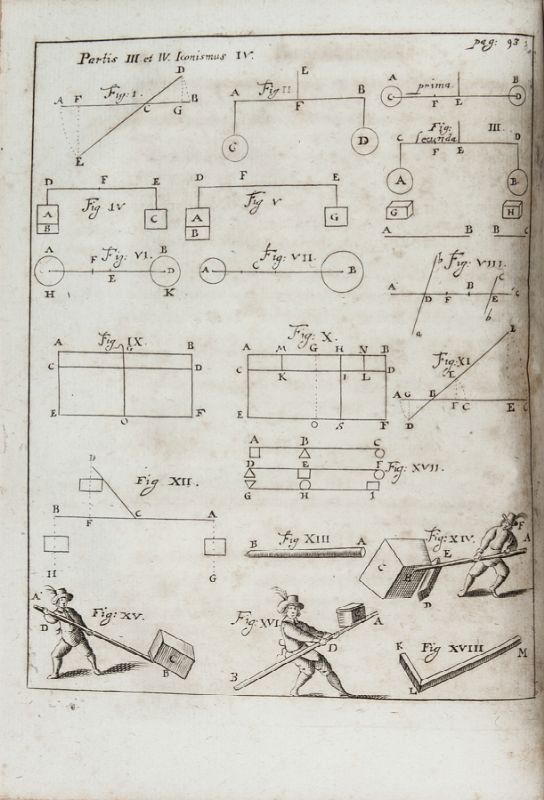 pag: 93
Partis III et IV. Iconismus IV.
D
A F Fig: I. C G B
E
E
A Fig II B
F
C D
A prima B
C F E D
Fig: III.
C secunda D
F E
A B
D F E
Fig IV
A C
B
D F E
Fig V
A G
B
G H
A B B C
A Fig: VI. B
F D
E
H K
Fig: VII.
A C B
b Fig: VIII. c
A B
D F E C
a b
Fig IX.
A G B
C D
E O F
Fig: X.
A M G H N B
C D
K I L
E O S F
Fig XI
E
A G B
F C E C
D
Fig XII.
D
B F C A
H G
A B C
D E F
Fig: XVII.
G H I
B Fig XIII A
Fig: XIV.
F
A
E
C B
D
Fig: XV.
A
D
C
B
Fig: XVI
A
D
B
Fig XVIII
K M
L